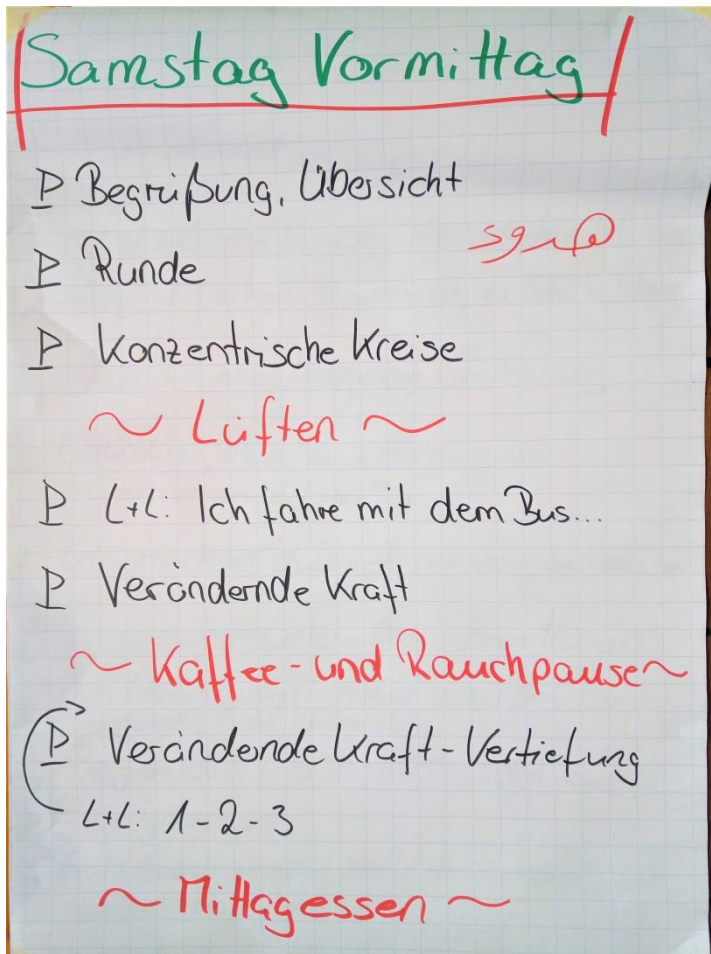 Samstag Vormittag
Begrüßung, Übersicht
Runde
Konzentrische Kreise
~ Lüften ~
L+L: Ich fahre mit dem Bus...
Verändernde Kraft
~ Kaffee- und Rauchpause ~
Verändernde Kraft - Vertiefung
L+L: 1-2-3
~ Mittagessen ~